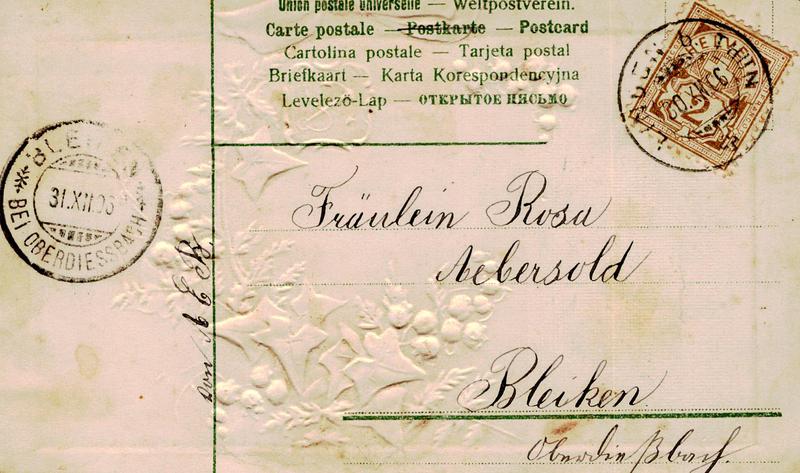 Union postale universelle — Weltpostverein.
Carte postale — Postkarte — Postcard
Cartolina postale — Tarjeta postal
Briefkaart — Karta Korespondencyjna
Levelező-Lap — ОТКРЫТОЕ ПИСЬМО
2
BLEIKEN
31.XII.06
BEI OBERDIESSBACH
Fräulein Rosa
Aebersold
von A E B.
Bleiken
Oberdießbach